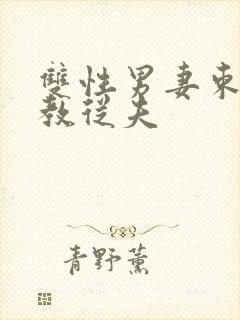 雙性男妻束
教從夫
青野薰